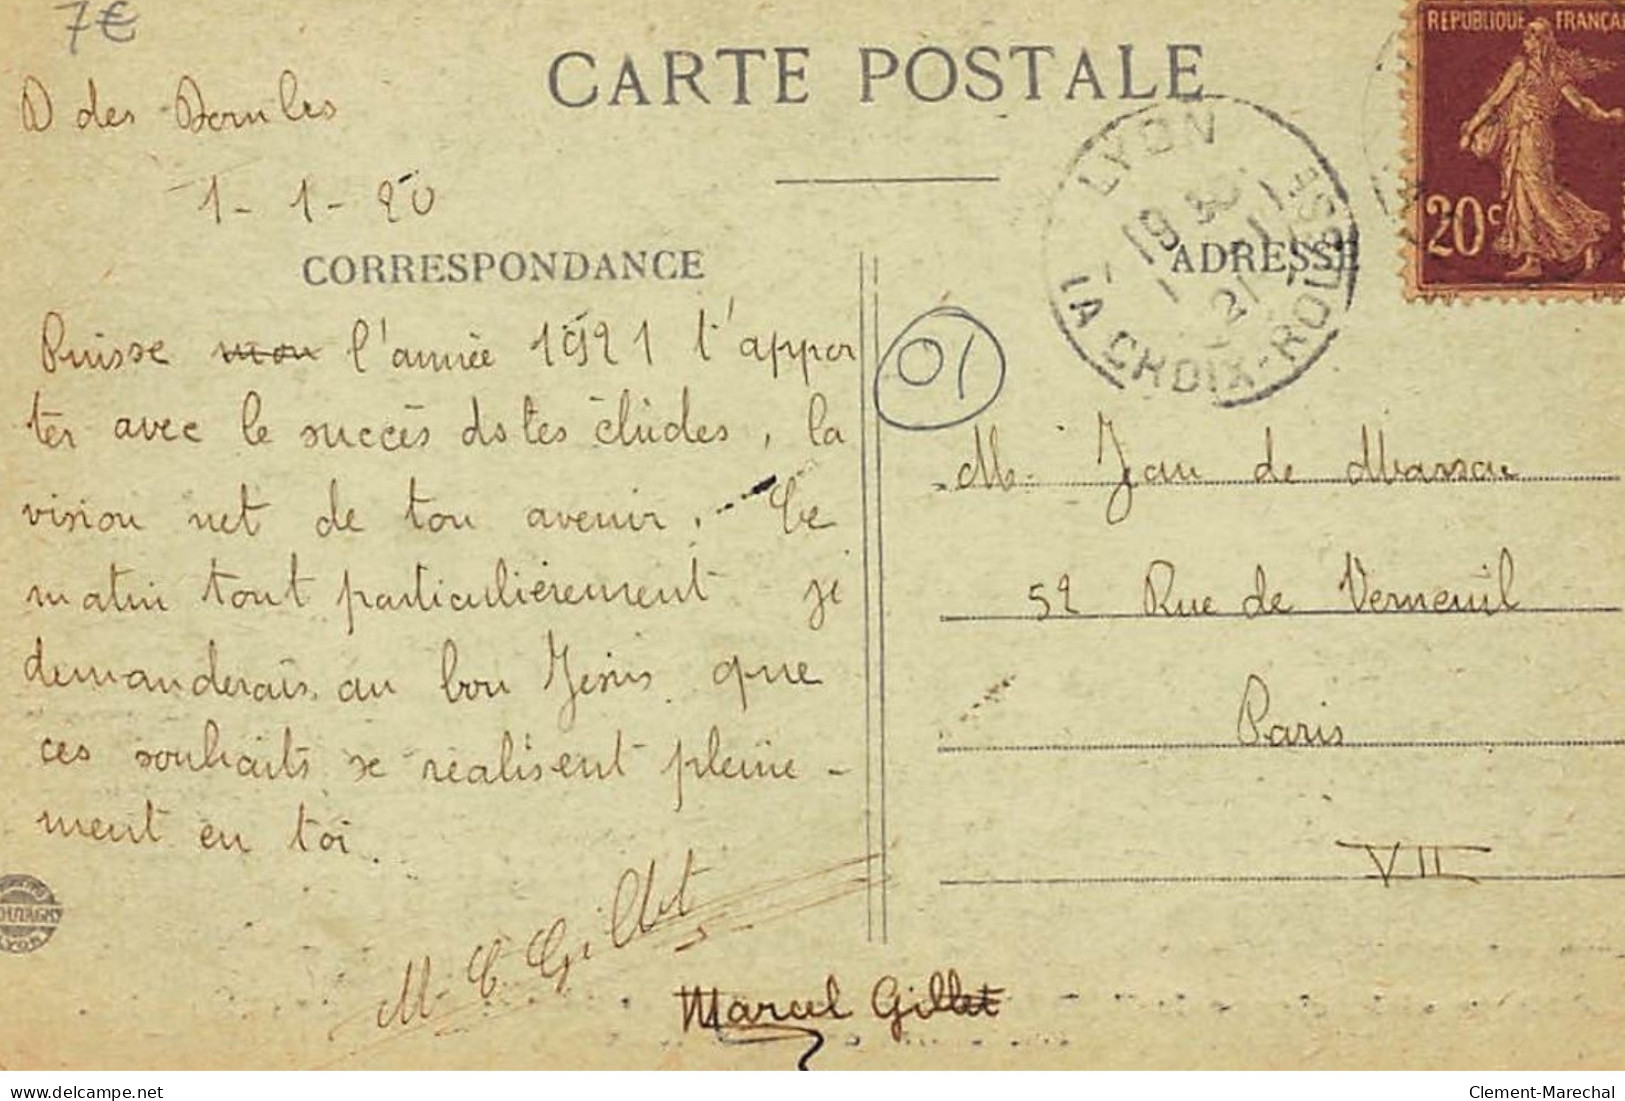 7€
CARTE POSTALE
REPUBLIQUE FRANÇAI
20c
D des
1-1-20
LYON
19 30
1 1
21
LA CROIX-ROUSSE
CORRESPONDANCE
ADRESSE
01
Puisse mon l'année 1921 t'appor
ter avec le succès ds tes études, la
vision net de ton avenir. Ce
matin tout particulièrement je
demanderais au bon Jésus que
ces souhaits se réalisent pleine-
ment en toi.
M. C. Gillet
Marcel Gillet
M. Jean de
52 Rue de Verneuil
Paris
VII
LYON
delcampe.net
Clement-Marechal